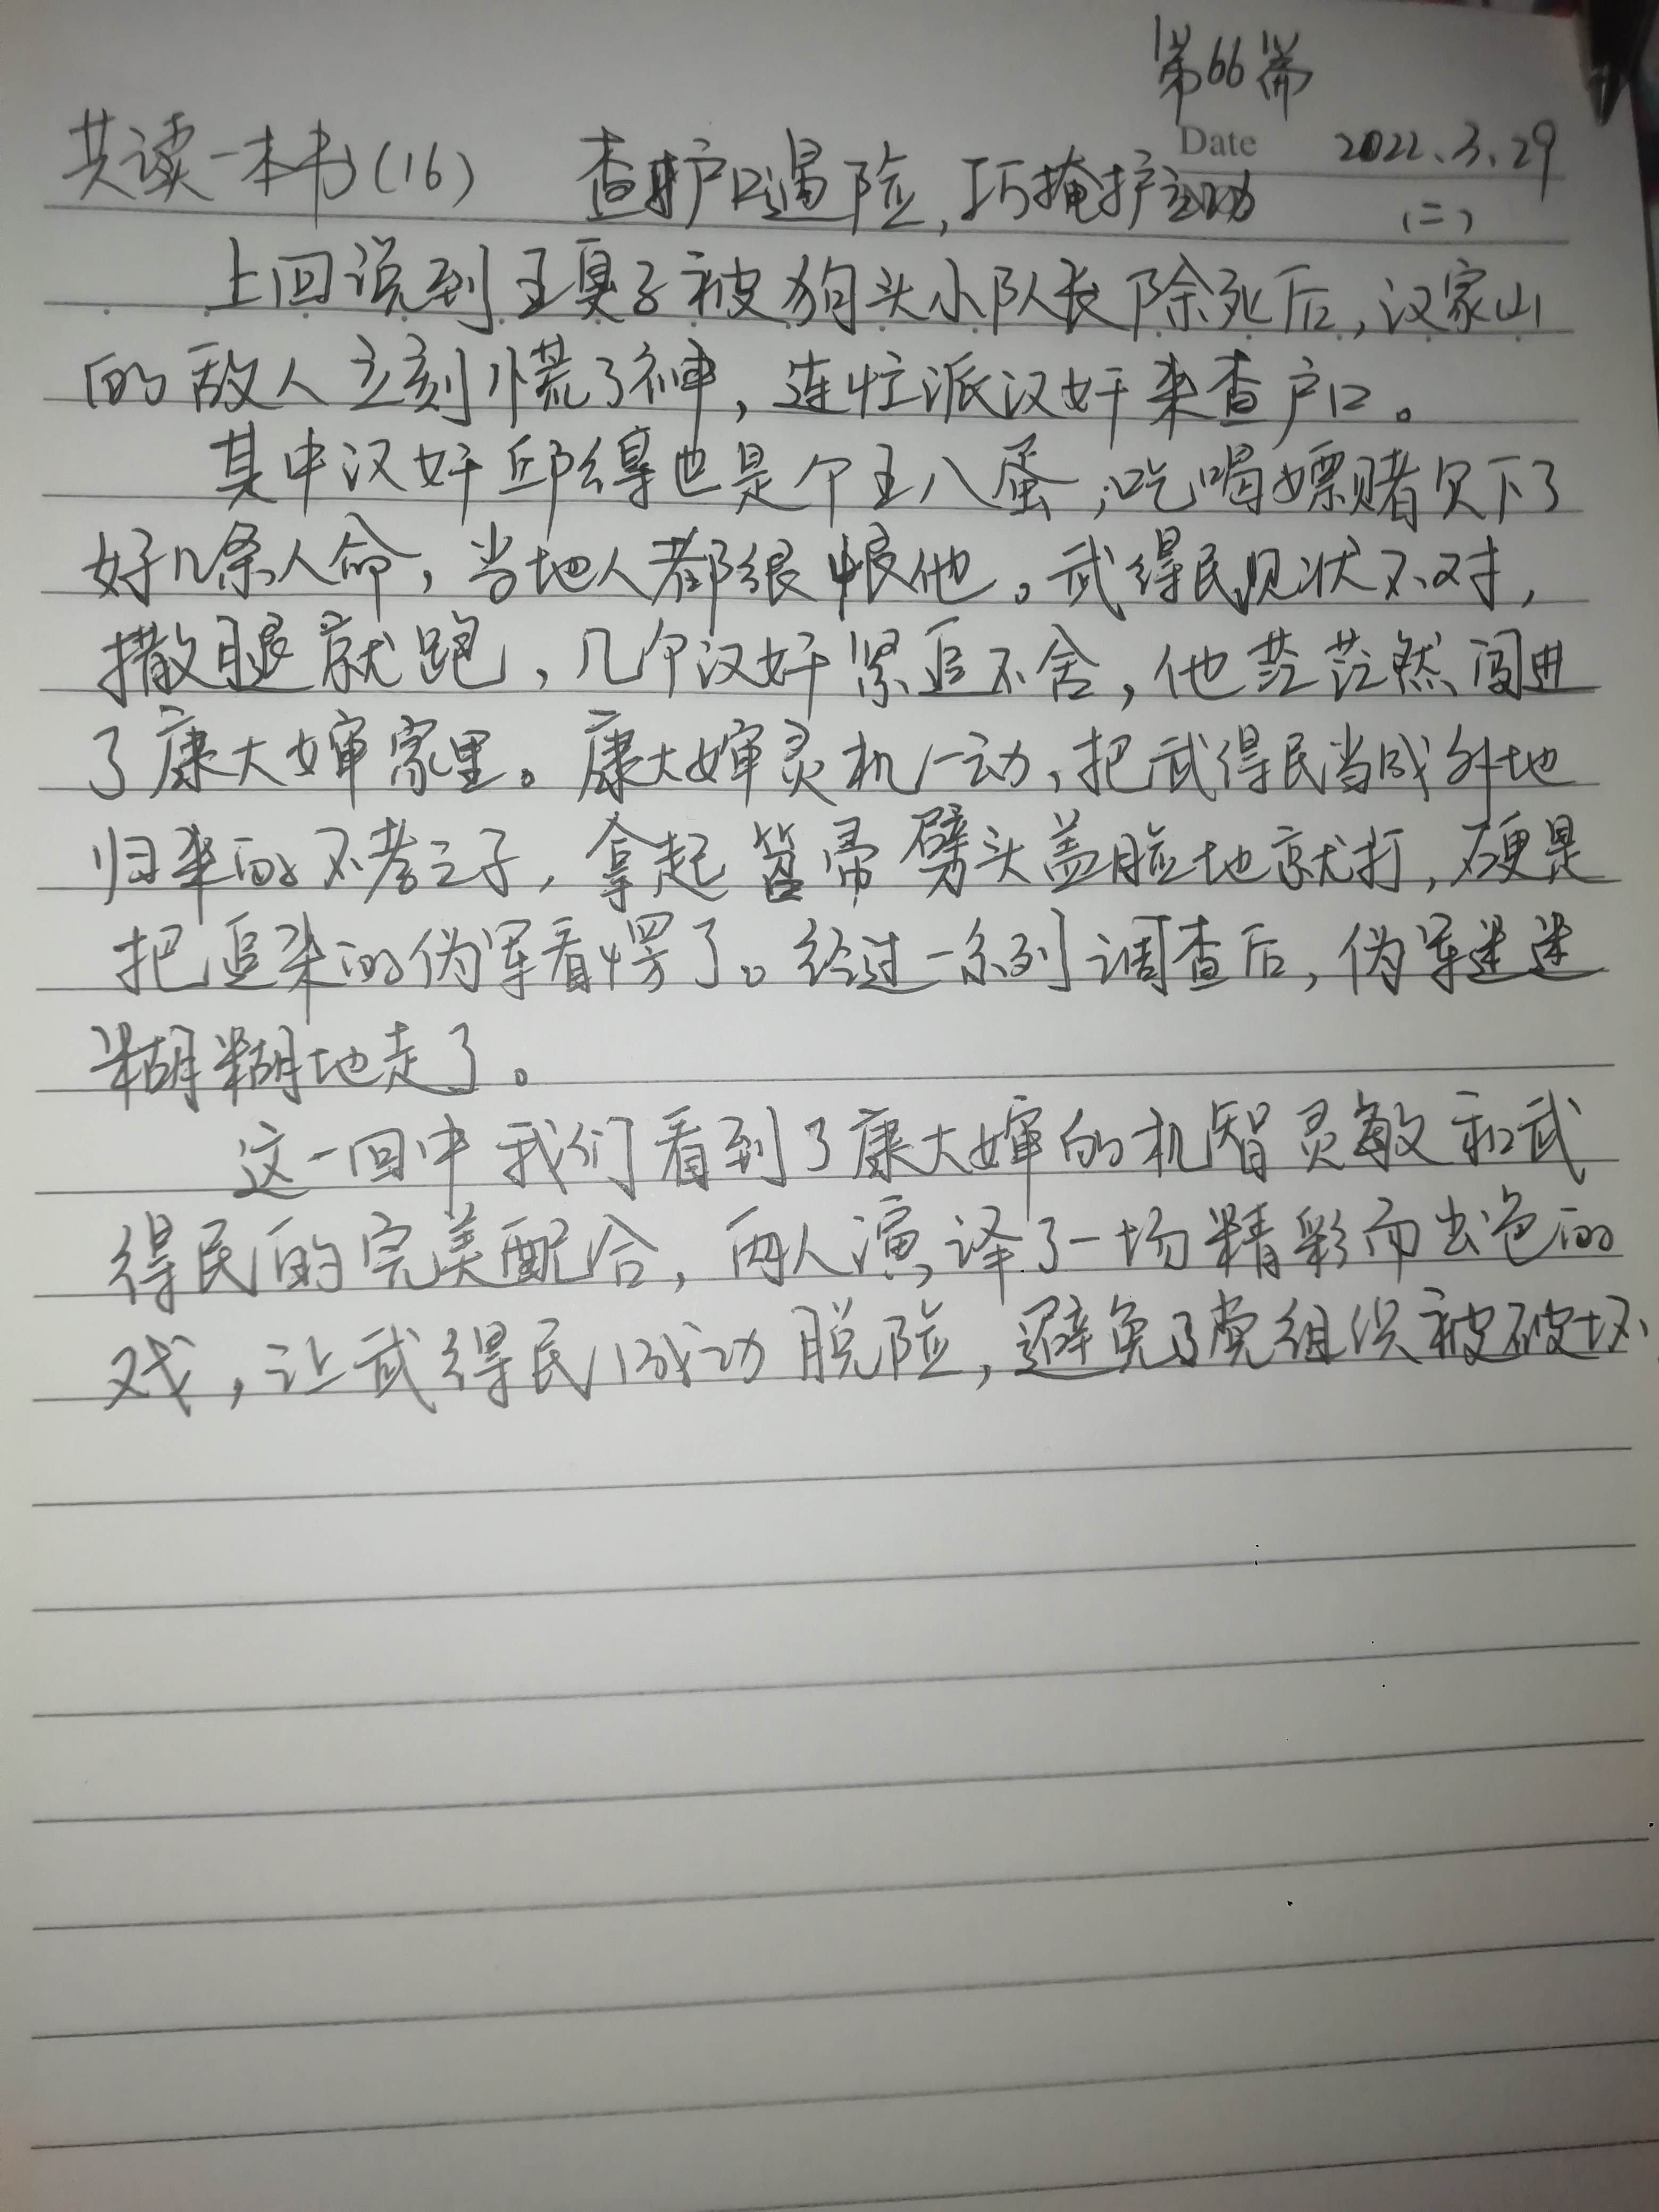 第66篇
Date 2022.3.29
共读一本书(16) 查护口遇险,巧掩护立功 (二)
上回说到王臭子被狗头小队长除死后,汉家山
的敌人立刻慌了神,连忙派汉奸来查户口。
其中汉奸邱得也是个王八蛋,吃喝嫖赌欠下了
好几条人命,当地人都很恨他。武得民见状不对,
撒腿就跑,几个汉奸紧追不舍,他茫茫然闯进
了康大婶家里。康大婶灵机一动,把武得民当成外地
归来的不孝之子,拿起笤帚劈头盖脸地就打,硬是
把追来的伪军看愣了。经过一系列调查后,伪军迷迷
糊糊地走了。
这一回中我们看到了康大婶的机智灵敏和武
得民的完美配合,两人演译了一场精彩而出色的
戏,让武得民成功脱险,避免了党组织被破坏